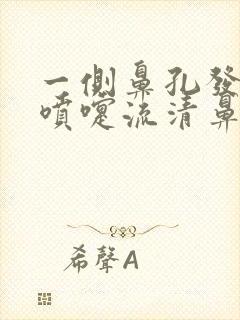 一側鼻孔發
噴嚏流清鼻
希聲A